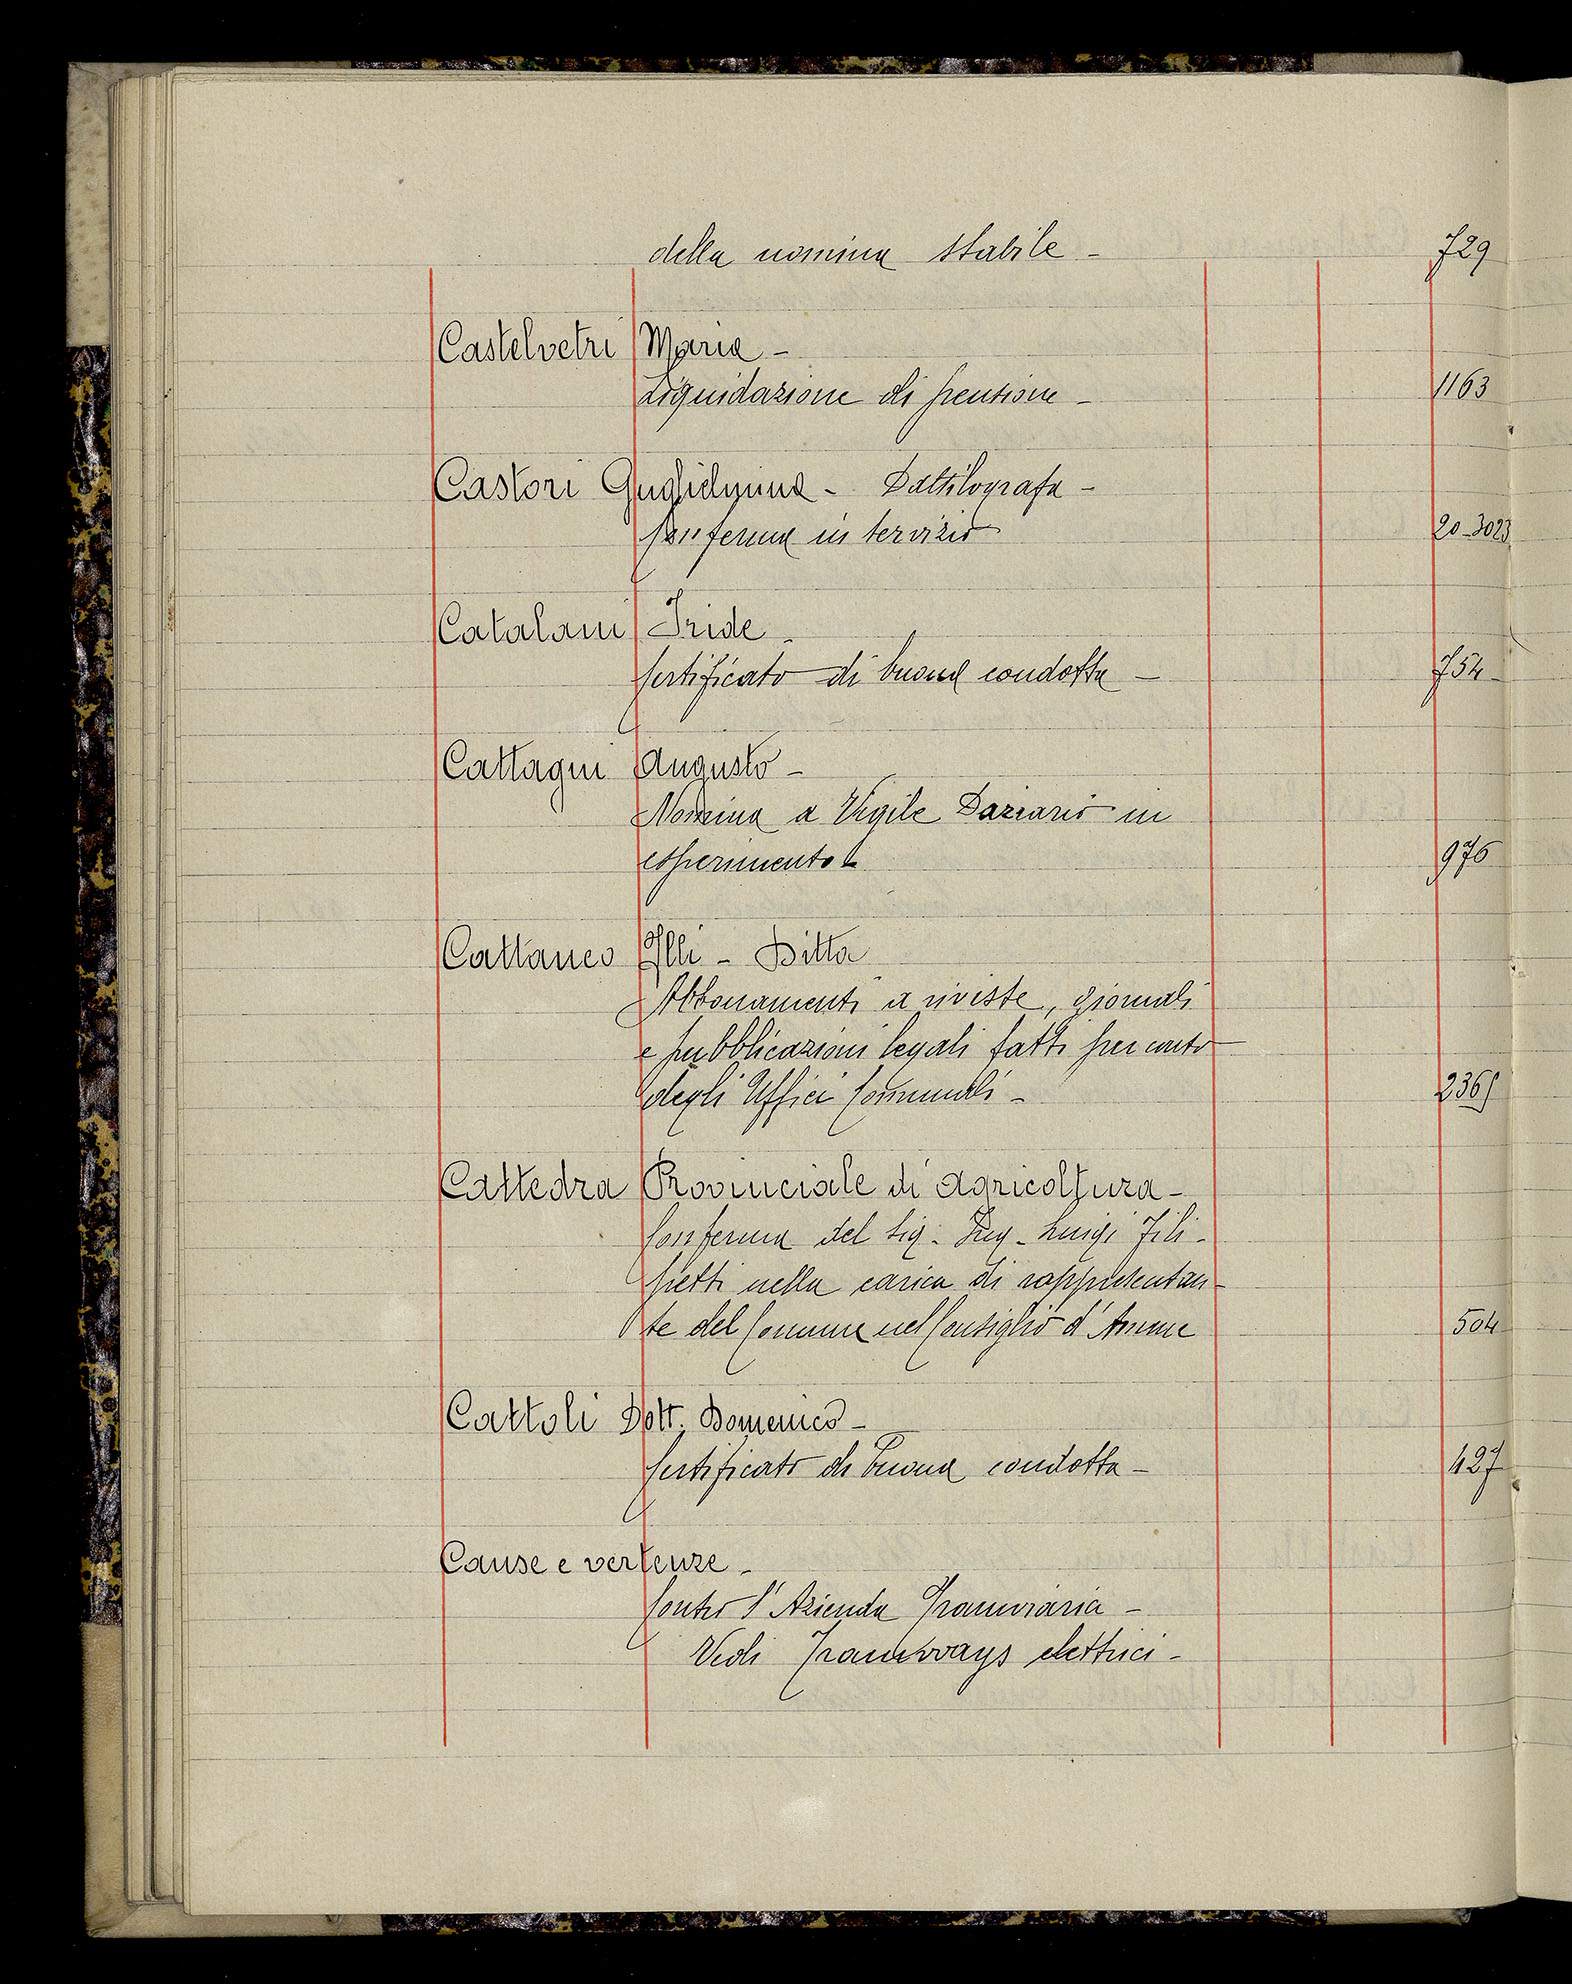 della nomina stabile - 729
Castelvetri Maria -
Liquidazione di pensione - 1163
Castori Guglielmina - Dattilografa -
Conferma in servizio 20-3023
Catalani Iride -
Certificato di buona condotta - 754
Cattagni Augusto -
Nomina a Vigile Daziario in
esperimento - 976
Cattaneo Flli - Ditta
Abbonamenti a riviste, giornali
e pubblicazioni legali fatti per conto
degli Uffici Comunali - 2365
Cattedra Provinciale di Agricoltura -
Conferma del Sig. Ing. Luigi Fili-
petti nella carica di rappresentan-
te del Comune nel Consiglio d'Amme 504
Cattoli Dott. Domenico -
Certificato di buona condotta - 427
Cause e vertenze -
Contro l'Azienda Tramviaria -
Vedi Tramways elettrici -